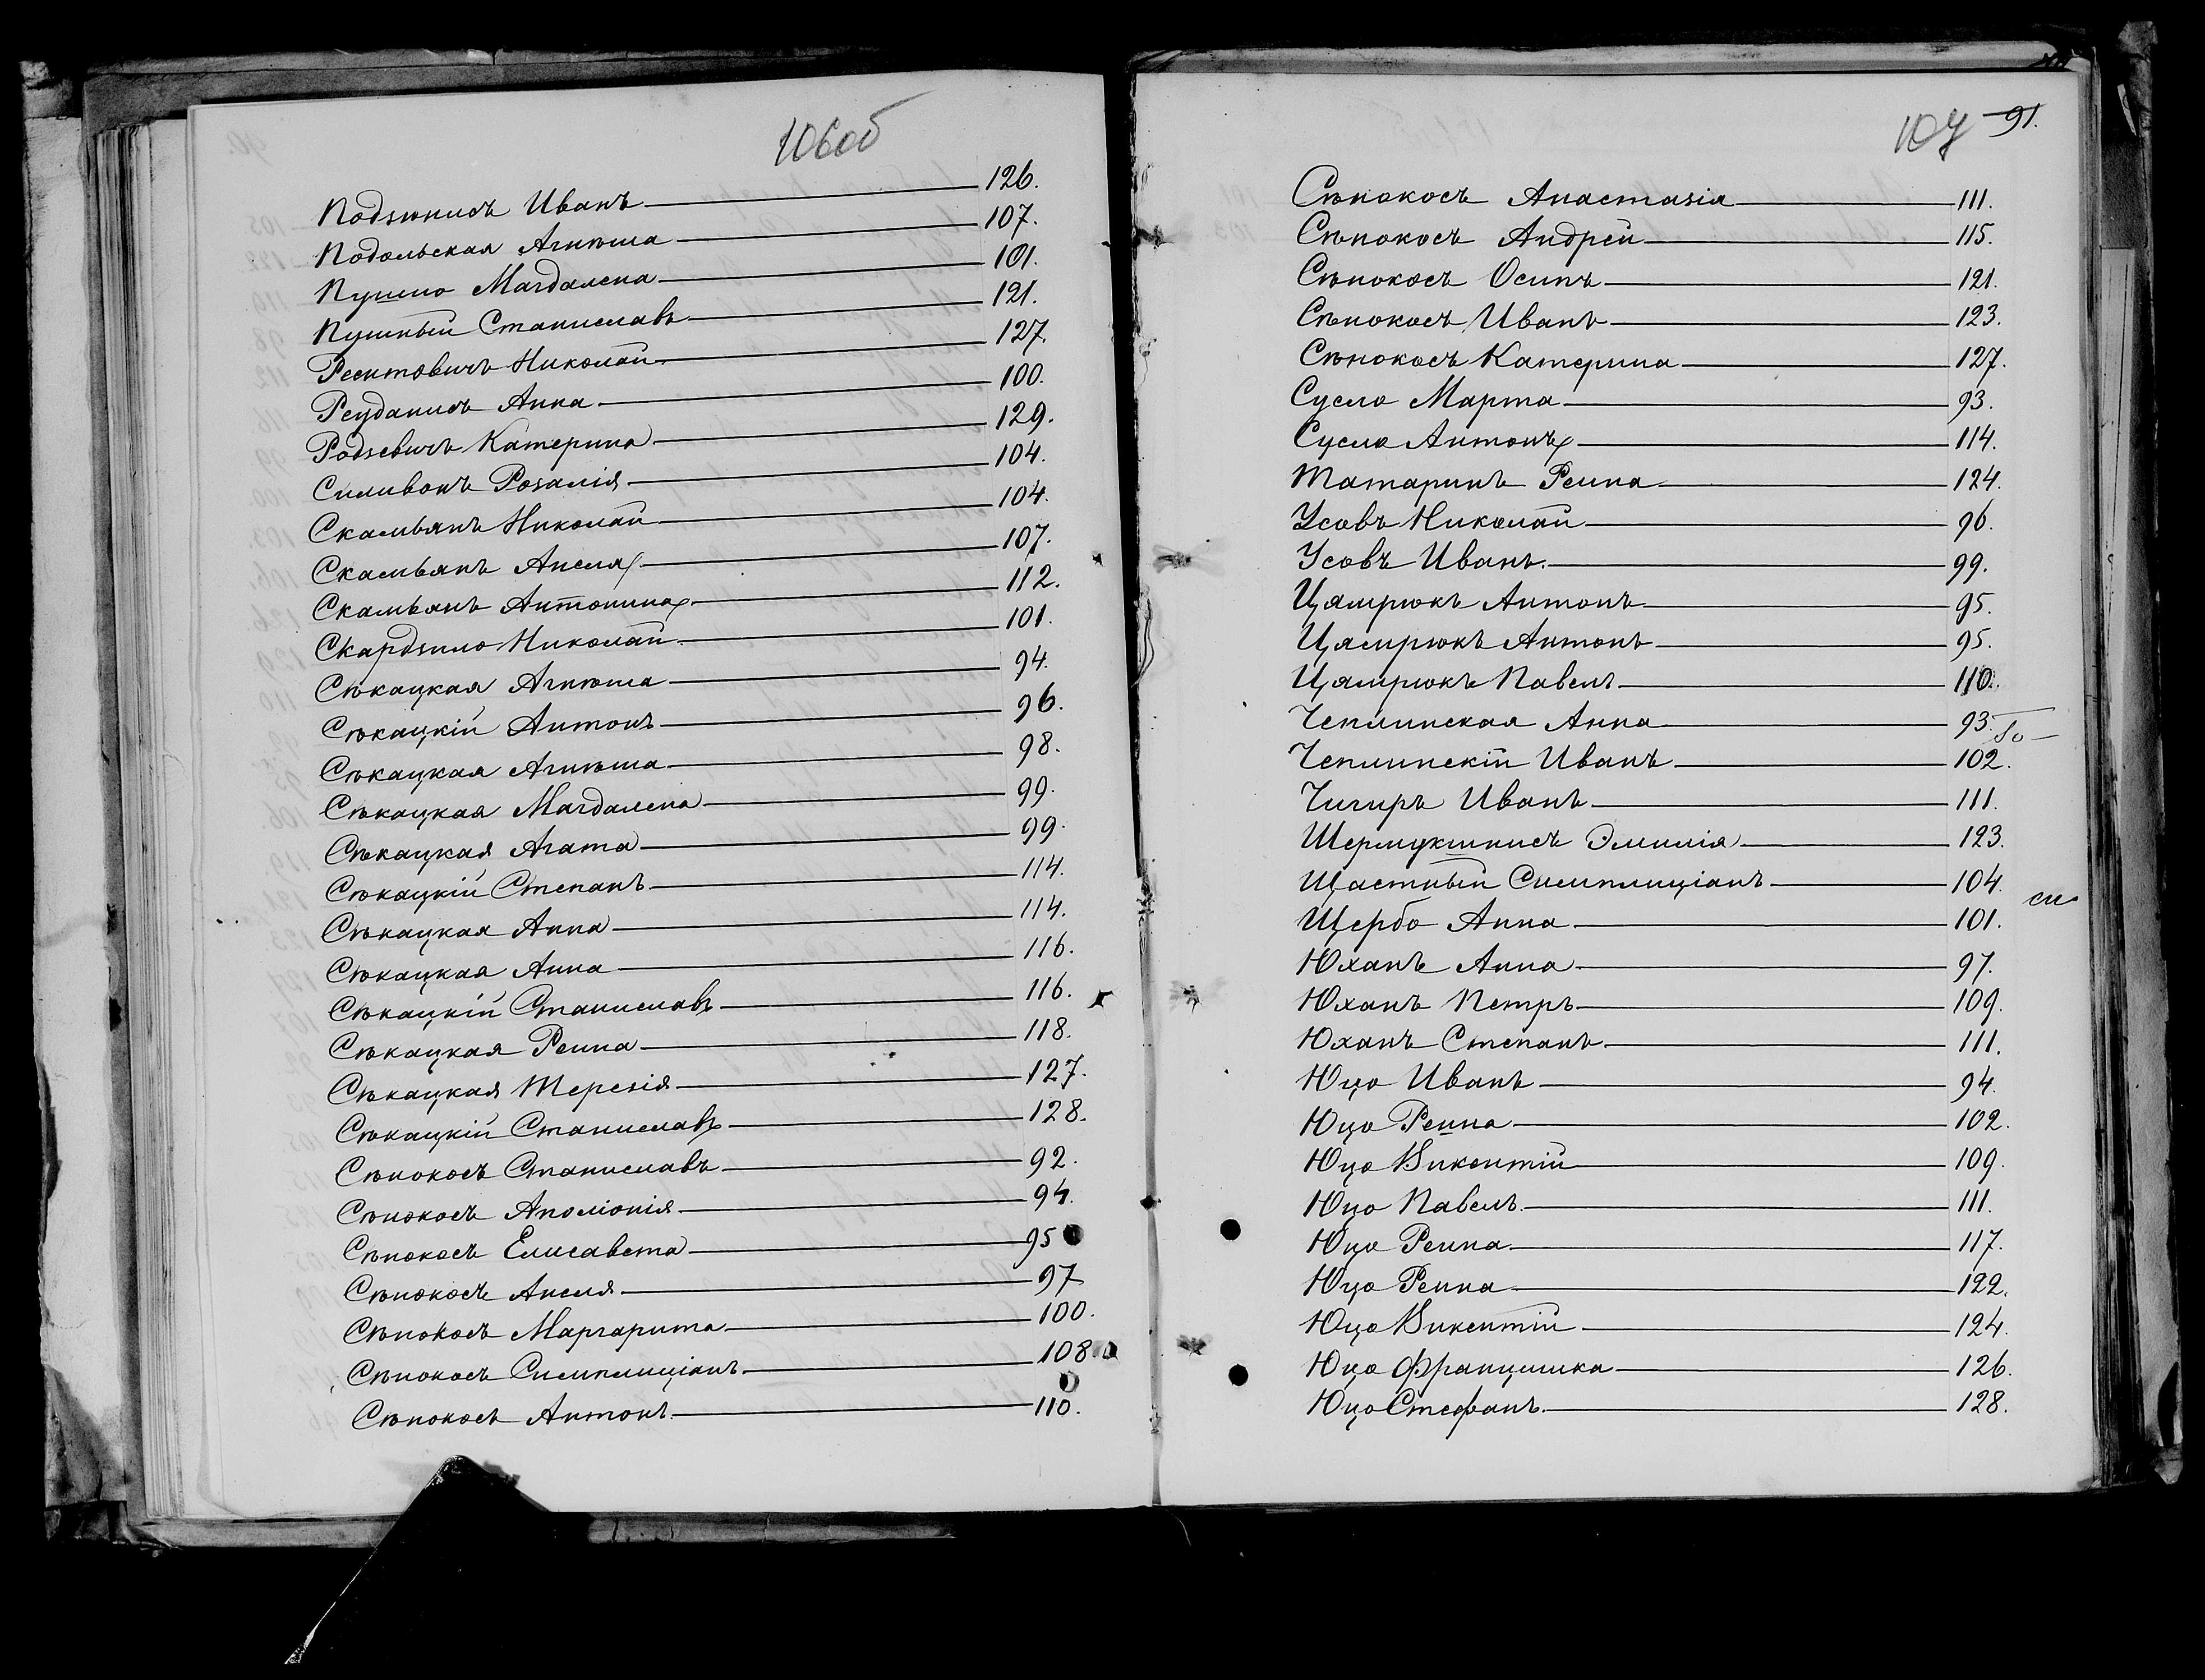 106об
Подзюнисъ Иванъ 126.
Подольская Агнѣша 107.
Пушно Магдалена 101.
Пушный Станиславъ 121.
Реентовичъ Николай 127.
Реуданисъ Анна 100.
Родзевичъ Катерина 129.
Силивонъ Розалія 104.
Скамьянъ Николай 104.
Скамьянъ Анеля 107.
Скамьянъ Антонина 112.
Скардзило Николай 101.
Сѣкацкая Агнѣша 94.
Сѣкацкій Антонъ 96.
Сѣкацкая Агнѣша 98.
Сѣкацкая Магдалена 99.
Сѣкацкая Агата 99.
Сѣкацкій Степанъ 114.
Сѣкацкая Анна 114.
Сѣкацкая Анна 116.
Сѣкацкій Станиславъ 116.
Сѣкацкая Реина 118.
Сѣкацкая Терезія 127.
Сѣкацкій Станиславъ 128.
Сѣнокосъ Станиславъ 92.
Сѣнокосъ Аполіонія 94.
Сѣнокосъ Елисавета 95
Сѣнокосъ Анеля 97
Сѣнокосъ Маргарита 100.
Сѣнокосъ Симплиціанъ 108.
Сѣнокосъ Антонъ 110.
107 91.
Сѣнокосъ Анастазія 111.
Сѣнокосъ Андрей 115.
Сѣнокосъ Осипъ 121.
Сѣнокосъ Иванъ 123.
Сѣнокосъ Катерина 127.
Сусло Марта 93.
Сусло Антонъ 114.
Татаринъ Реина 124.
Усовъ Николай 96.
Усовъ Иванъ 99.
Цямрюкъ Антонъ 95.
Цямрюкъ Антонъ 95.
Цямрюкъ Павелъ 110.
Чеплинская Анна 93.
Чеплинскій Иванъ 102.
Чигиръ Иванъ 111.
Шермукшнисъ Эмилія 123.
Щастный Симплиціанъ 104.
Щербо Анна 101.
Юханъ Анна 97.
Юханъ Петръ 109.
Юханъ Степанъ 111.
Юцо Иванъ 94.
Юцо Реина 102.
Юцо Викентій 109.
Юцо Павелъ 111.
Юцо Реина 117.
Юцо Реина 122.
Юцо Викентій 124.
Юцо Францишка 126.
Юцо Стефанъ 128.